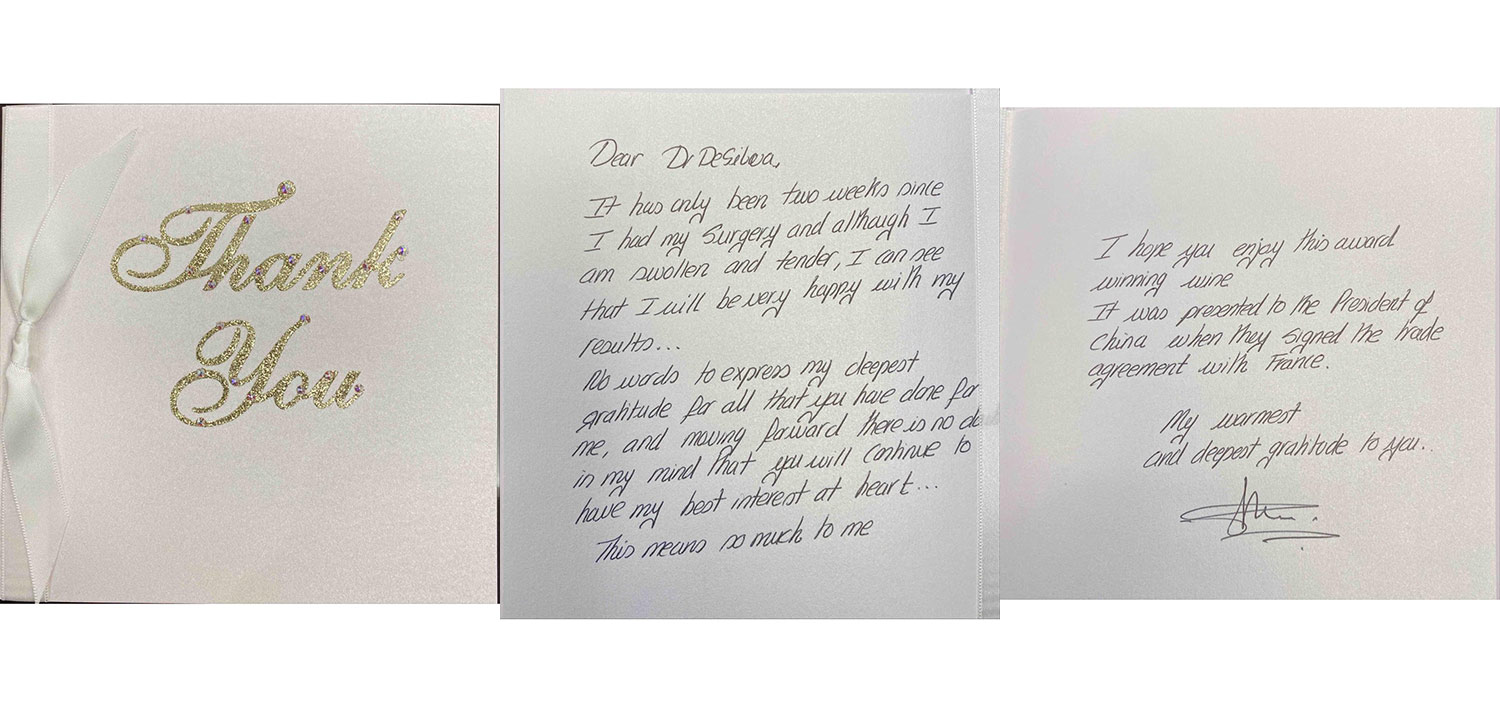 Thank
You
Dear Dr DeSilva,
It has only been two weeks since
I had my surgery and although I
am swollen and tender, I can see
that I will be very happy with my
results...
No words to express my deepest
gratitude for all that you have done for
me, and moving forward there is no do
in my mind that you will continue to
have my best interest at heart...
This means so much to me
I hope you enjoy this award
winning wine
It was presented to the President of
China when they signed the trade
agreement with France.
My warmest
and deepest gratitude to you..